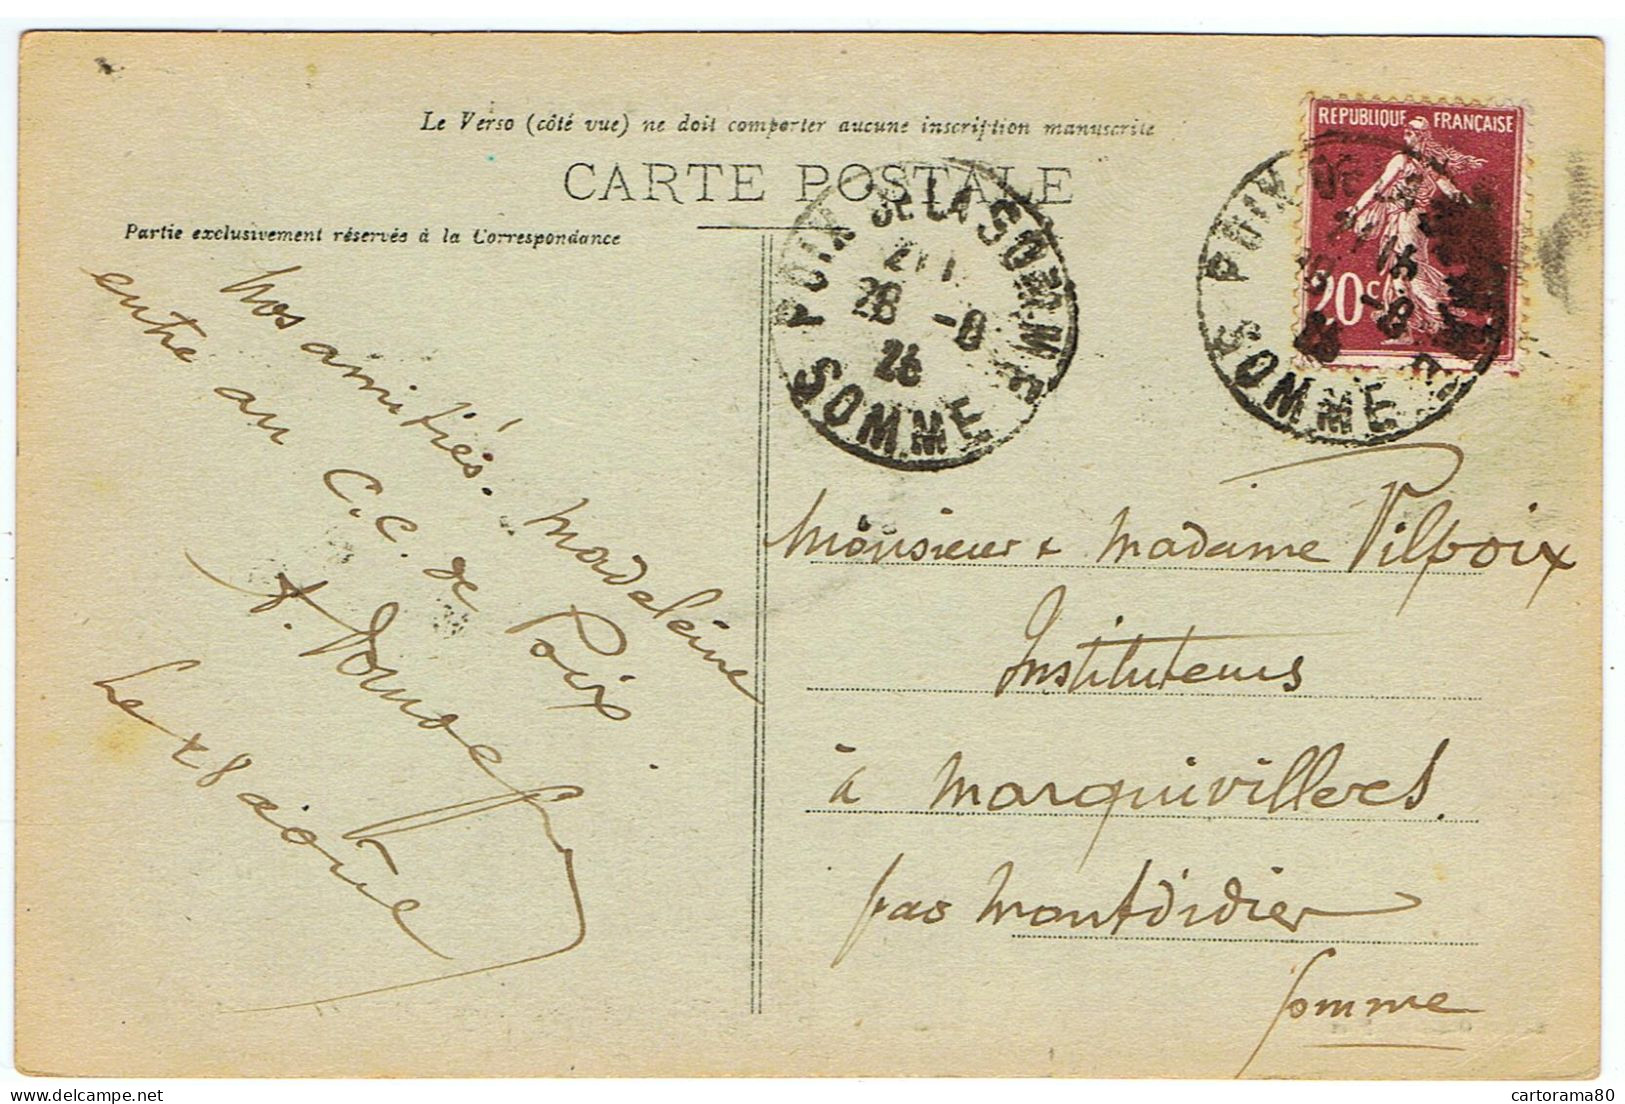 Le Verso (côté vue) ne doit comporter aucune inscription manuscrite
CARTE POSTALE
Partie exclusivement réservée à la Correspondance
REPUBLIQUE FRANÇAISE
20c
POIX DE LA SOMME
28 -8
26
SOMME
POIX DE LA SOMME
-8
26
SOMME
Nos amitiés. Madeleine
entre au C.C. de Poix.
Le 28 août
Monsieur & Madame Pilpoix
Instituteurs
à Marquivillers.
par Montdidier
Somme
cartorama80